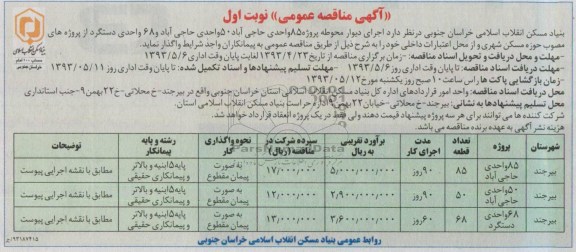 «آگهی مناقصه عمومی» نوبت اول
بنیاد مسکن انقلاب اسلامی خراسان جنوبی درنظر دارد اجرای دیوار محوطه پروژه۸۵واحدی حاجی آباد،۵۰واحدی حاجی آباد و۶۸ واحدی دستگرد از پروژه های
مصوب حوزه مسکن شهری و از محل اعتبارات داخلی خود را به شرح ذیل از طریق مناقصه عمومی به پیمانکاران واجد شرایط واگذار نماید.
-مهلت و محل دریافت و تحویل اسناد مناقصه: -زمان برگزاری مناقصه از تاریخ ۱۳۹۳/۴/۲۳ لغایت پایان وقت اداری ۱۳۹۳/۵/۶
-مهلت دریافت اسناد مناقصه: تا پایان وقت اداری روز ۱۳۹۳/۵/۶ -مهلت تسلیم پیشنهادها و اسناد تکمیل شده: تا پایان وقت اداری روز ۱۳۹۳/۰۵/۱۱
-زمان بازگشایی پاکت ها راس ساعت ۱۰صبح روز یکشنبه مورخ ۱۳۹۳/۰۵/۱۲
محل دریافت اسناد مناقصه: واحد امور قراردادهای اداره کل بنیاد مسکن انقلاب اسلامی استان خراسان جنوبی واقع در بیرجند-خ محلاتی-خ۲۲بهمن۹-جنب استانداری
محل تسلیم پیشنهادها به نشانی: بیرجند-خ محلاتی-خیابان۲۲بهمن حراست بنیاد مسکن انقلاب اسلامی استان.
شرکت کننده ها می توانند برای هر سه پروژه پیشنهاد قیمت دهند ولی فقط در یک پروژه انعقاد قرارداد خواهد شد.
هزینه نشر آگهی به عهده برنده مناقصه می باشد.
شهرستان | پروژه | تعداد قطعه | مدت اجرای کار | برآورد تقریبی به ریال | سپرده شرکت در مناقصه (ریال) | نحوه واگذاری کار | رشته و پایه پیمانکار | توضیحات
بیرجند | ۸۵واحدی حاجی آباد | ۸۵ | ۹۰روز | ۵/۰۰۰/۰۰۰/۰۰۰ | ۱۷/۰۰۰/۰۰۰ | به صورت پیمان مقطوع | پایه۵ابنیه و بالاتر و پیمانکاری حقیقی | مطابق با نقشه اجرایی پیوست
بیرجند | ۵۰واحدی حاجی آباد | ۵۰ | ۹۰روز | ۲/۹۰۰/۰۰۰/۰۰۰ | ۱۲/۰۰۰/۰۰۰ | به صورت پیمان مقطوع | پایه۵ابنیه و بالاتر و پیمانکاری حقیقی | مطابق با نقشه اجرایی پیوست
بیرجند | ۶۸واحدی دستگرد | ۶۸ | ۶۰روز | ۳/۶۰۰/۰۰۰/۰۰۰ | ۱۳/۰۰۰/۰۰۰ | به صورت پیمان مقطوع | پایه۵ابنیه و بالاتر و پیمانکاری حقیقی | مطابق با نقشه اجرایی پیوست
روابط عمومی بنیاد مسکن انقلاب اسلامی خراسان جنوبی
۹۳۱۸۷۴۱۵/خ